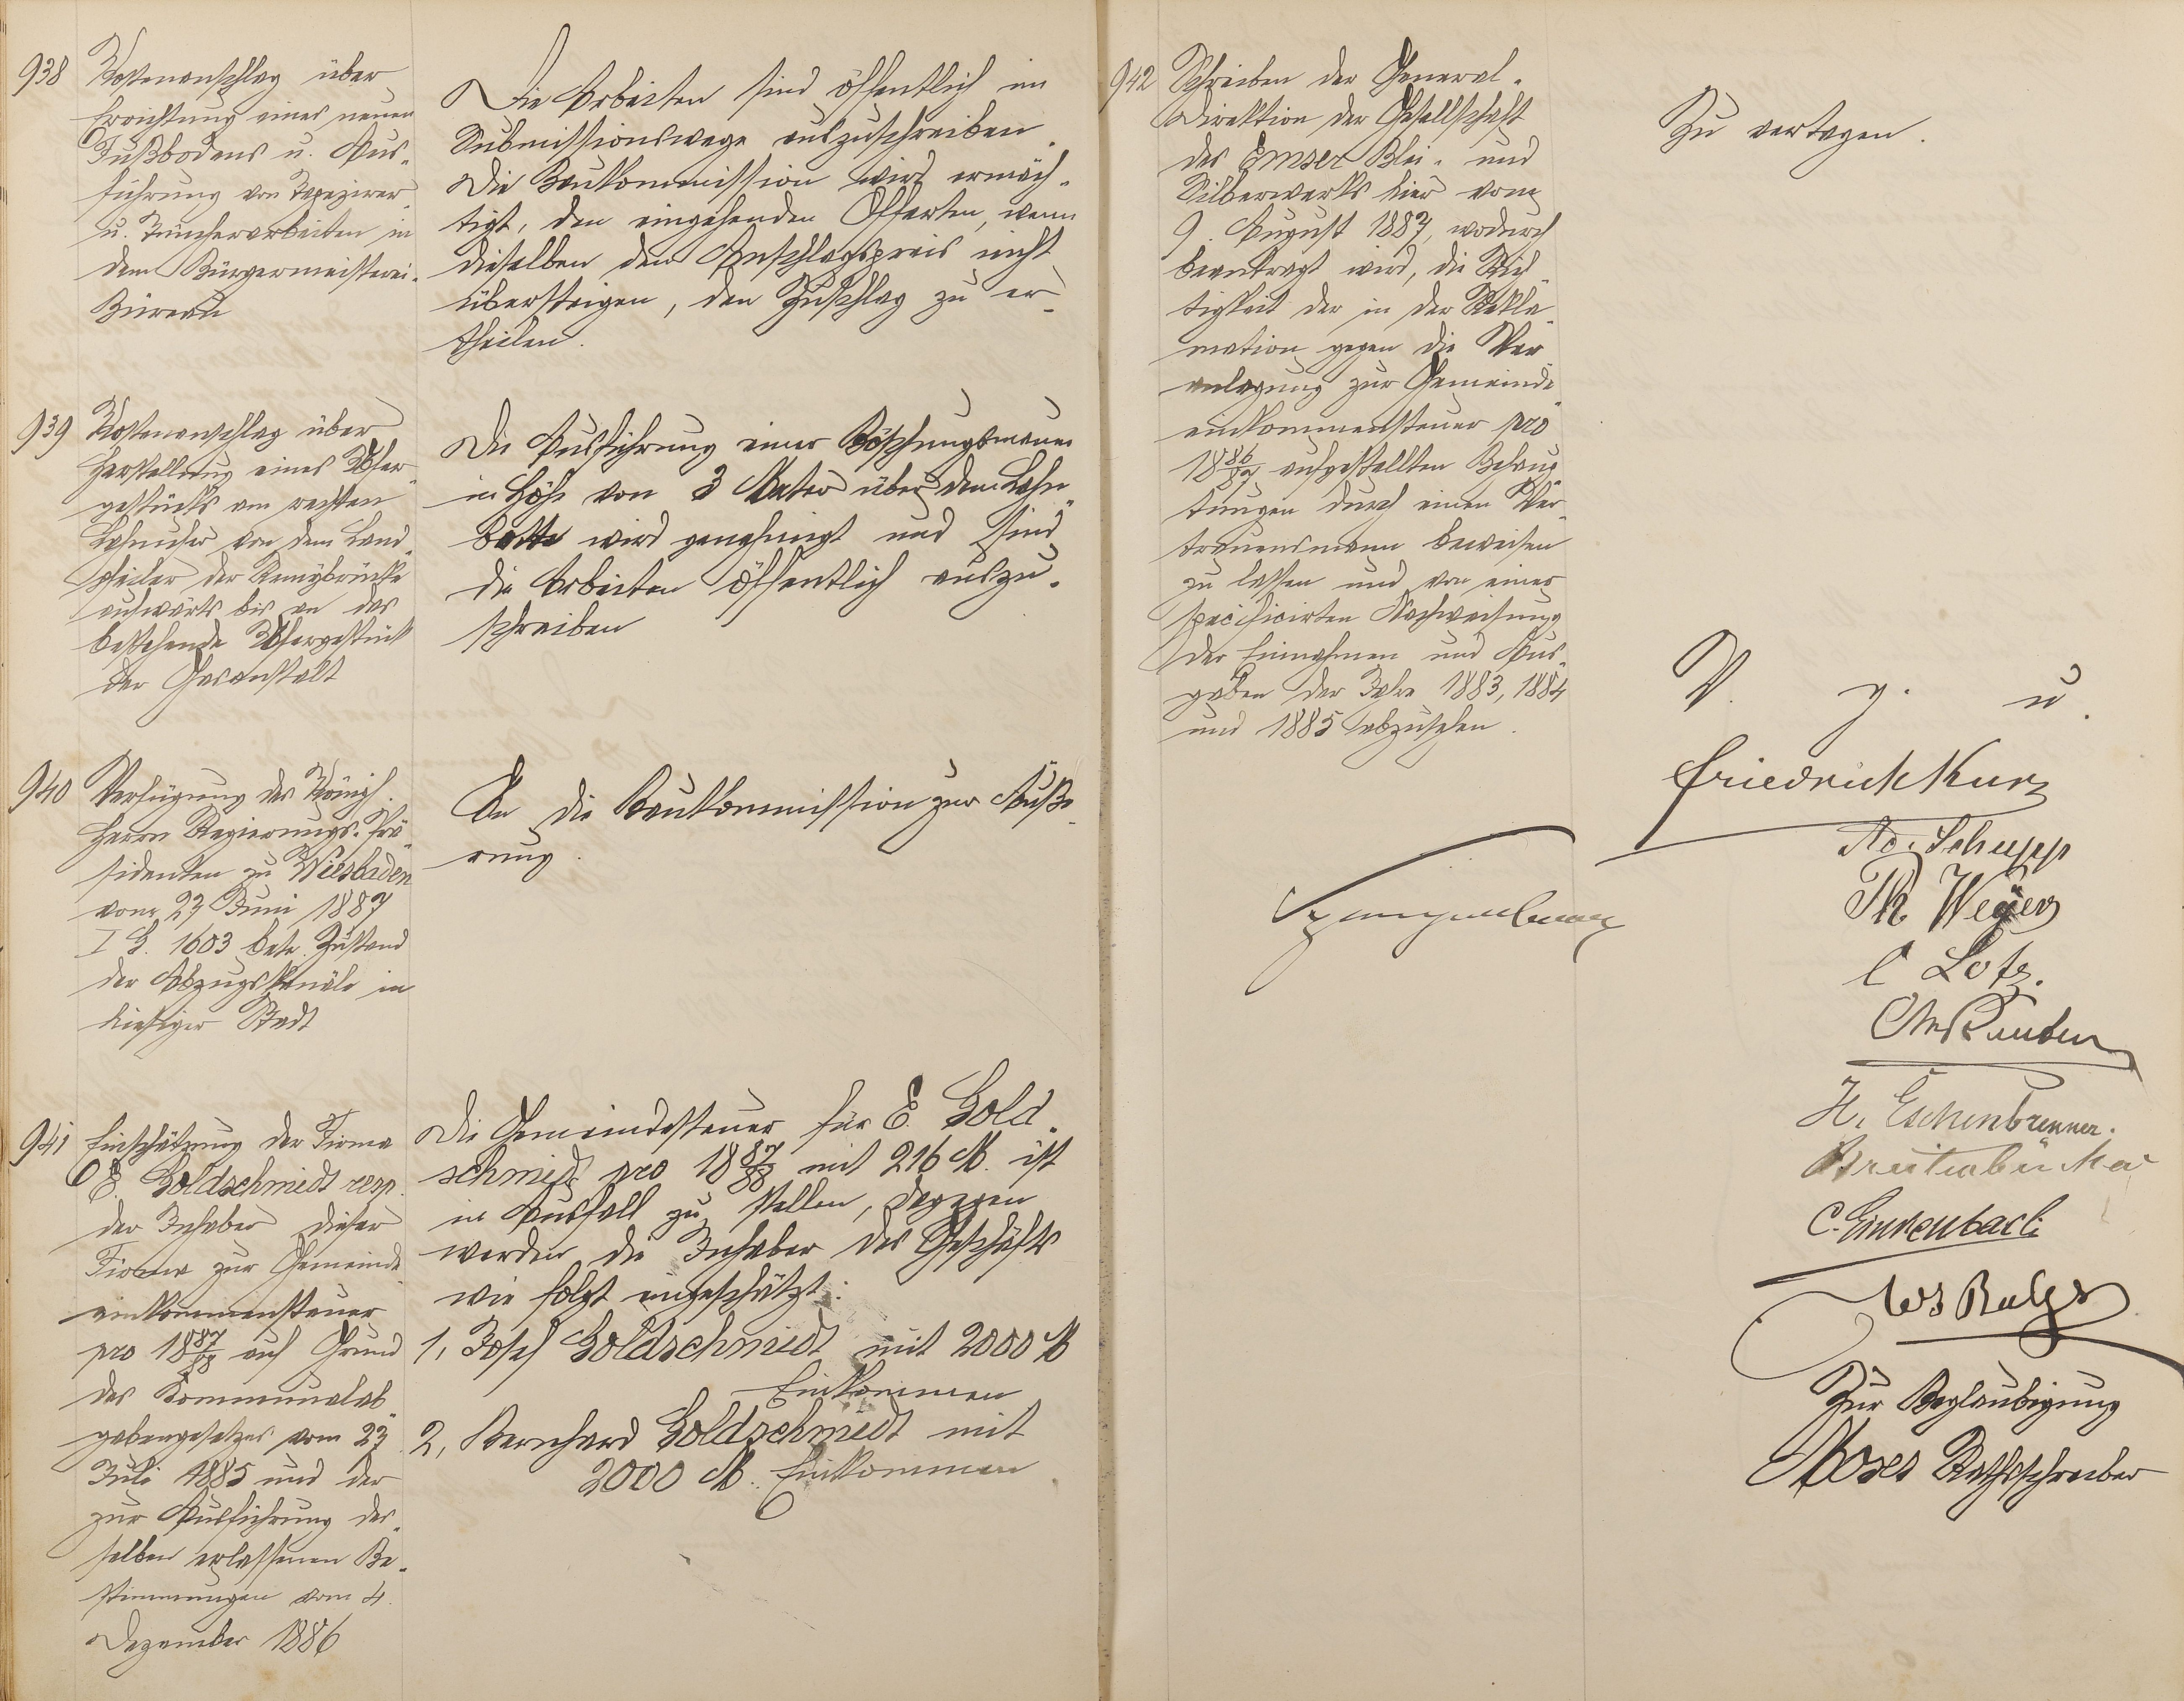 938
Kostenanschlag über
Errichtung eines neuen
Fußbodens u. Aus-
führung von Tapezirer
u. Tüncherarbeiten in
dem Bürgermeisterei-
Büreau
Die Arbeiten sind öffentlich im
Submissionswege auszuschreiben.
Die Baukommission wird ermäch-
tigt, den eingehenden Offerten, wenn
dieselben den Anschlagspreis nicht
übersteigen, den Zuschlag zu er-
theilen.
939
Kostenanschlag über
Herstellung eines Ufer-
gestücks am rechten
Lahnufer von dem Land-
pfeiler der Remybrücke
aufwärts bis an das
bestehende Ufergestück
der Gasanstalt
Die Ausführung einer Böschungsmauer
in Höhe von 3 Meter über dem Lahn-
bette wird genehmigt und sind
die Arbeiten öffentlich auszu-
schreiben
940
Verfügung des Königl.
Herrn Regierungs-Prä-
sidenten zu Wiesbaden
vom 27 Juni 1887
I G. 1603 betr. Zustand
der Abzugskanäle in
hiesiger Stadt
An die Baukommission zur Äuße-
rung.
941
Einschätzung der Firma
E. Goldschmidt resp.
der Inhaber dieser
Firma zur Gemeinde-
einkommensteuer
pro 1887/88 auf Grund
des Kommunalab-
gabengesetzes vom 27
Juli 1885 und der
zur Ausführung des-
selben erlassenen Be-
stimmungen vom 4
Dezember 1886
Die Gemeindesteuer für E. Gold-
schmidt pro 1887/88 mit 216 M. ist
in Ausfall zu stellen, dagegen
werden die Inhaber des Geschäfts
wie folgt eingeschätzt:
1, Josef Goldschmidt mit 2000 M
Einkommen
2, Bernhard Goldschmidt mit
2000 M. Einkommen
942
Schreiben der General-
direktion der Gesellschaft
des Emser Blei- und
Silberwerks hier vom
9. August 1887, wodurch
beantragt wird, die Rich-
tigkeit der in der Rekla-
mation gegen die Ver-
anlagung zur Gemeinde-
einkommensteuer pro
1886/87 aufgestellten Behaup-
tungen durch einen Ver-
trauensmann beweisen
zu lassen und von einer
specificirten Nachweisung
der Einnahmen und Aus-
gaben der Jahre 1883, 1884
und 1885 abzusehen.
Zu vertagen.
V. g. u.
Friedrich Kurz
Ad. Schupp
Th Weyer
C Lotz.
Spangenberg
H. Eschenbrenner.
C. Linkenbach
Zur Beglaubigung
Moses Rathsschreiber